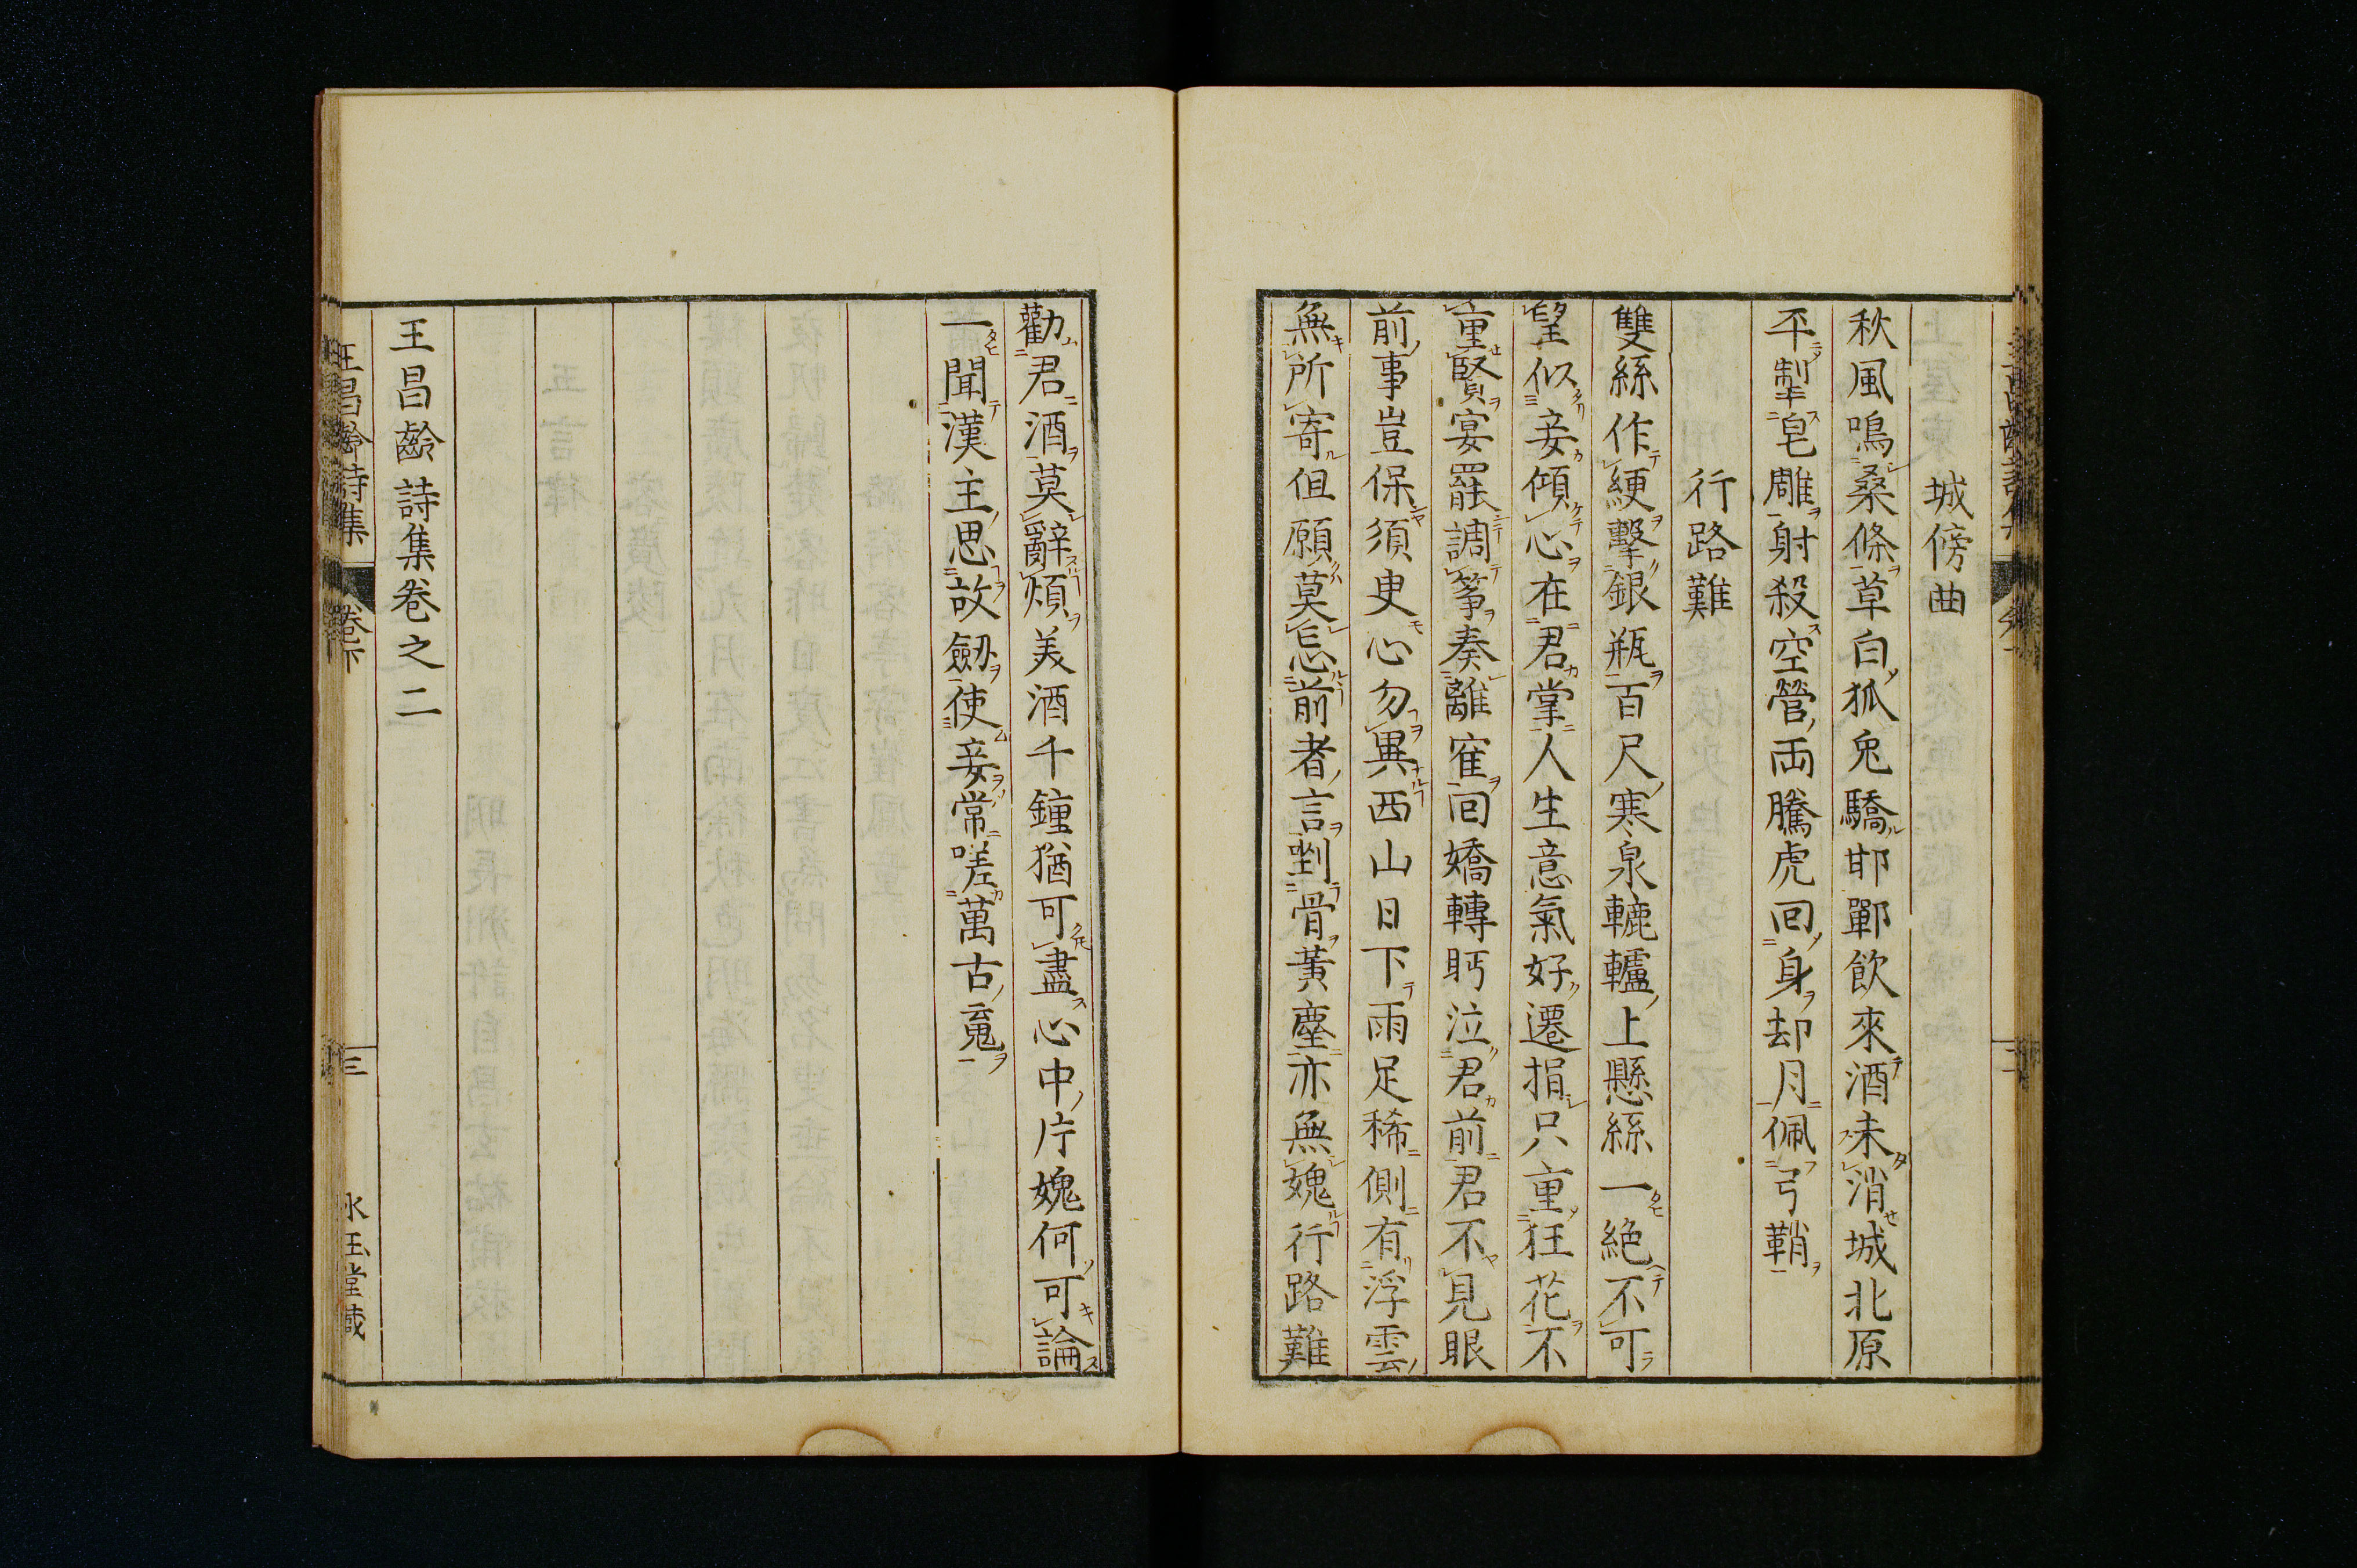 城傍曲
秋風鳴桑條草白狐兔驕邯鄲飲來酒未消城北原
平掣皂雕射殺空營兩騰虎回身却月佩弓鞘
行路難
雙絲作綆擊銀瓶百尺寒泉轆轤上懸絲一絶不可
望似妾傾心在君掌人生意氣好遷捐只重狂花不
重賢宴罷調箏奏離寉回嬌轉眄泣君前君不見眼
前事豈保須臾心勿異西山日下雨足稀側有浮雲
無所寄但願莫忘前者言剉骨黃塵亦無媿行路難
勸君酒莫辭煩美酒千鐘猶可盡心中片媿何可論
一聞漢主思故劒使妾常嗟萬古䰟
王昌齡詩集卷之二
王昌齡詩集
卷下
三
氷玉堂藏